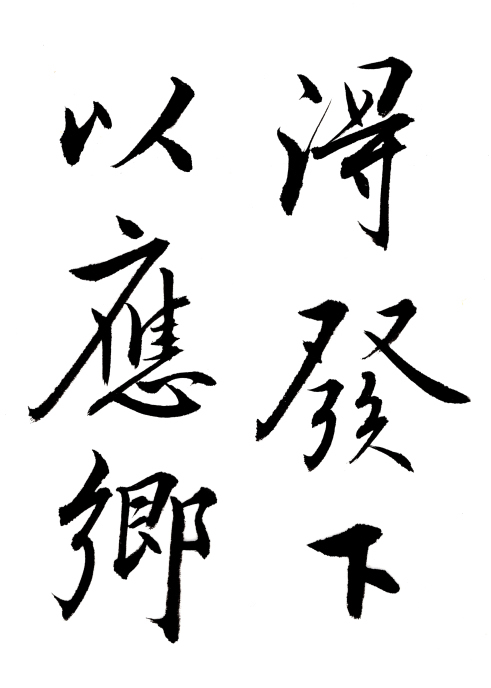 得發下
以應鄉